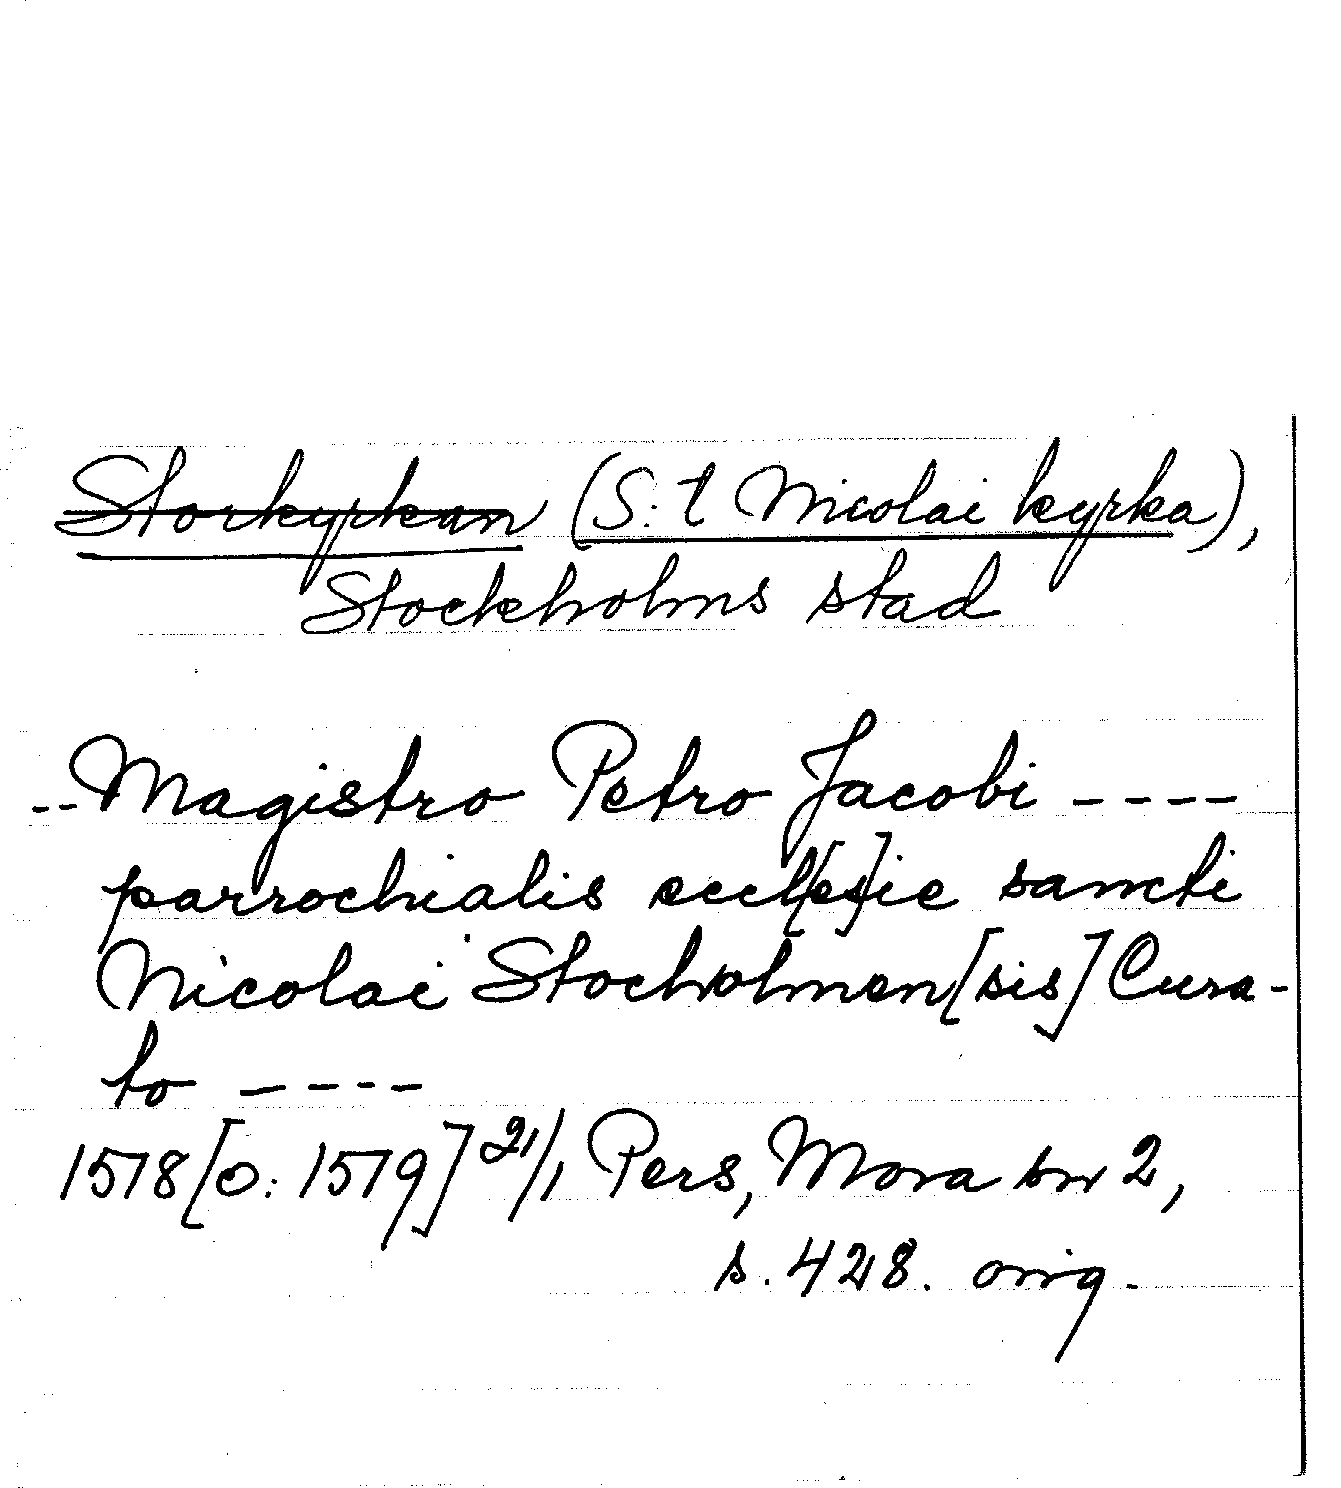 Storkyrkan (S:t Nicolai kyrka),
Stockholms stad
-- Magistro Petro Jacobi ----
parrochialis eccl[es]ie sancti
Nicolai Stocholmen[sis] Cura-
to ----
1578[o: 1579] 21/1 Pers, Mora br 2,
s. 428. orig.